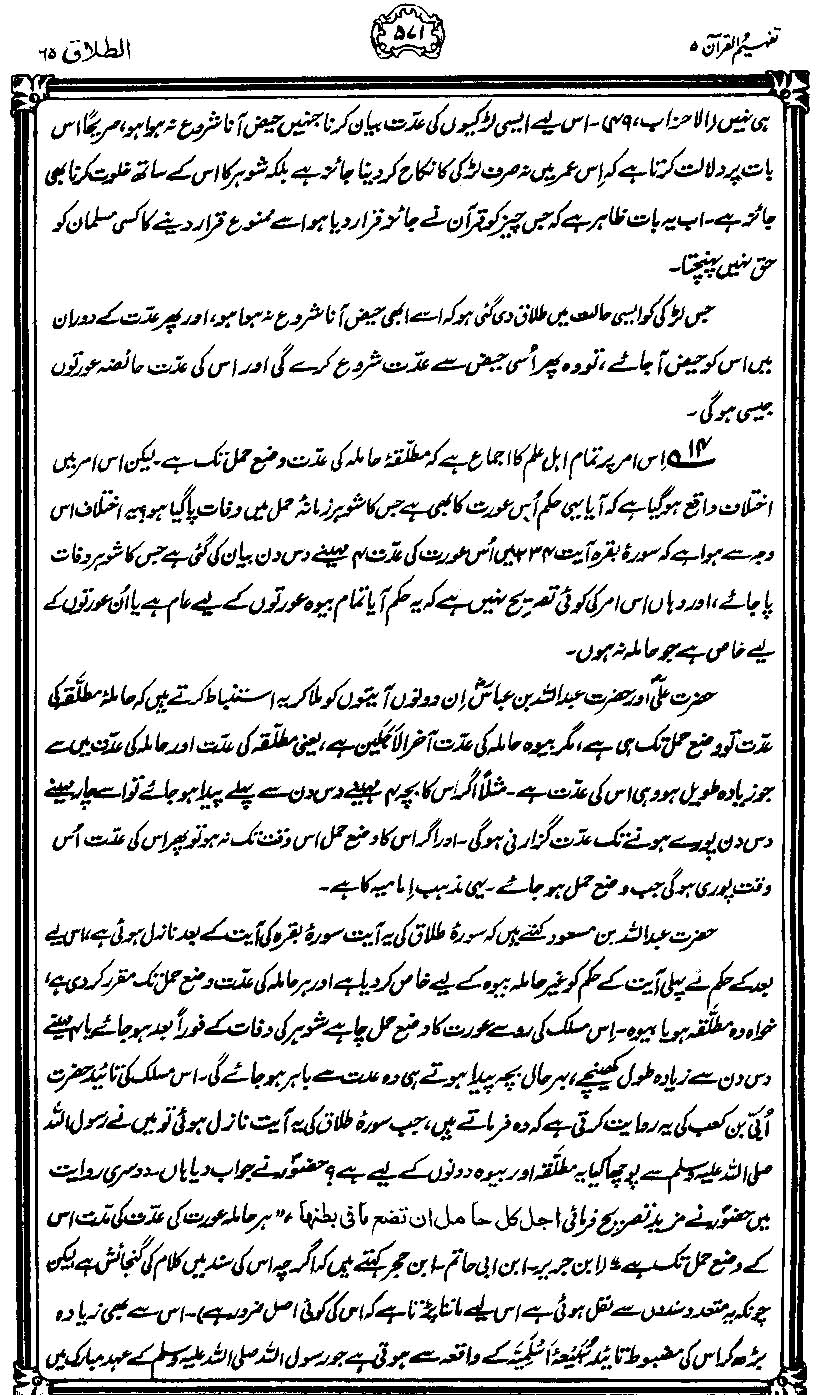 تفہیم القرآن ۵
۵۷۱
الطلاق ۶۵
ہی نہیں (الاحزاب، ۴۹)۔ اس لیے ایسی لڑکیوں کی عدّت بیان کرنا جنہیں حیض آنا شروع نہ ہوا ہو، صریحاً اس
بات پر دلالت کرتا ہے کہ اِس عمر میں نہ صرف لڑکی کا نکاح کر دینا جائز ہے بلکہ شوہر کا اس کے ساتھ خلوت کرنا بھی
جائز ہے۔ اب یہ بات ظاہر ہے کہ جس چیز کو قرآن نے جائز قرار دیا ہو اسے ممنوع قرار دینے کا کسی مسلمان کو
حق نہیں پہنچتا۔
جس لڑکی کو ایسی حالت میں طلاق دی گئی ہو کہ اسے ابھی حیض آنا شروع نہ ہوا ہو، اور پھر عدّت کے دوران
میں اس کو حیض آ جائے، تو وہ پھر اُسی حیض سے عدّت شروع کرے گی اور اس کی عدّت حائضہ عورتوں
جیسی ہوگی۔
۱۴؎ اِس امر پر تمام اہل علم کا اجماع ہے کہ مطلّقۂ حاملہ کی عدّت وضع حمل تک ہے۔ لیکن اس امر میں
اختلاف واقع ہو گیا ہے کہ آیا یہی حکم اُس عورت کا بھی ہے جس کا شوہر زمانۂ حمل میں وفات پا گیا ہو؟ یہ اختلاف اس
وجہ سے ہوا ہے کہ سورۂ بقرہ آیت ۲۳۴ میں اُس عورت کی عدّت ۴ مہینے دس دن بیان کی گئی ہے جس کا شوہر وفات
پا جائے، اور وہاں اس امر کی کوئی تصریح نہیں ہے کہ یہ حکم آیا تمام بیوہ عورتوں کے لیے عام ہے یا اُن عورتوں کے
لیے خاص ہے جو حاملہ نہ ہوں۔
حضرت علیؓ اور حضرت عبداللہ بن عباسؓ اِن دونوں آیتوں کو ملا کر یہ استنباط کرتے ہیں کہ حاملۂ مطلّقہ کی
عدّت تو وضع حمل تک ہی ہے، مگر بیوہ حاملہ کی عدّت آخر الاَجَلَین ہے، یعنی مطلّقہ کی عدّت اور حاملہ کی عدّت میں سے
جو زیادہ طویل ہو وہی اس کی عدّت ہے۔ مثلاً اگر اس کا بچہ ۴ مہینے دس دن سے پہلے پیدا ہو جائے تو اسے چار مہینے
دس دن پورے ہونے تک عدّت گزارنی ہوگی۔ اور اگر اس کا وضع حمل اس وقت تک نہ ہو تو پھر اس کی عدّت اُس
وقت پوری ہوگی جب وضع حمل ہو جائے۔ یہی مذہب اِمامیہ کا ہے۔
حضرت عبداللہ بن مسعود کہتے ہیں کہ سورۂ طلاق کی یہ آیت سورۂ بقرہ کی آیت کے بعد نازل ہوئی ہے، اس لیے
بعد کے حکم نے پہلی آیت کے حکم کو غیر حاملہ بیوہ کے لیے خاص کر دیا ہے اور ہر حاملہ کی عدّت وضع حمل تک مقرر کر دی ہے،
خواہ وہ مطلّقہ ہو یا بیوہ۔ اِس مسلک کی رو سے عورت کا وضع حمل چاہے شوہر کی وفات کے فوراً بعد ہو جائے یا ۴ مہینے
دس دن سے زیادہ طول کھینچے، بہرحال بچہ پیدا ہوتے ہی وہ عدت سے باہر ہو جائے گی۔ اس مسلک کی تائید حضرت
اُبیّ بن کعب کی یہ روایت کرتی ہے کہ وہ فرماتے ہیں، جب سورۂ طلاق کی یہ آیت نازل ہوئی تو میں نے رسول اللہ
صلی اللہ علیہ وسلم سے پوچھا کیا یہ مطلّقہ اور بیوہ دونوں کے لیے ہے؟ حضورؐ نے جواب دیا ہاں۔ دوسری روایت
میں حضورؐ نے مزید تصریح فرمائی اجل کل حامل ان تضع ما فی بطنها، ”ہر حاملہ عورت کی عدّت کی مدّت اس
کے وضع حمل تک ہے“ (ابن جریر۔ ابن ابی حاتم۔ ابن حجر کہتے ہیں کہ اگرچہ اس کی سند میں کلام کی گنجائش ہے لیکن
چونکہ یہ متعدد سندوں سے نقل ہوئی ہے اس لیے ماننا پڑتا ہے کہ اس کی کوئی اصل ضرور ہے)۔ اس سے بھی زیادہ
بڑھ کر اس کی مضبوط تائید سُبَیعۂ اَسلَمِیّہ کے واقعہ سے ہوتی ہے جو رسول اللہ صلی اللہ علیہ وسلم کے عہد مبارک میں